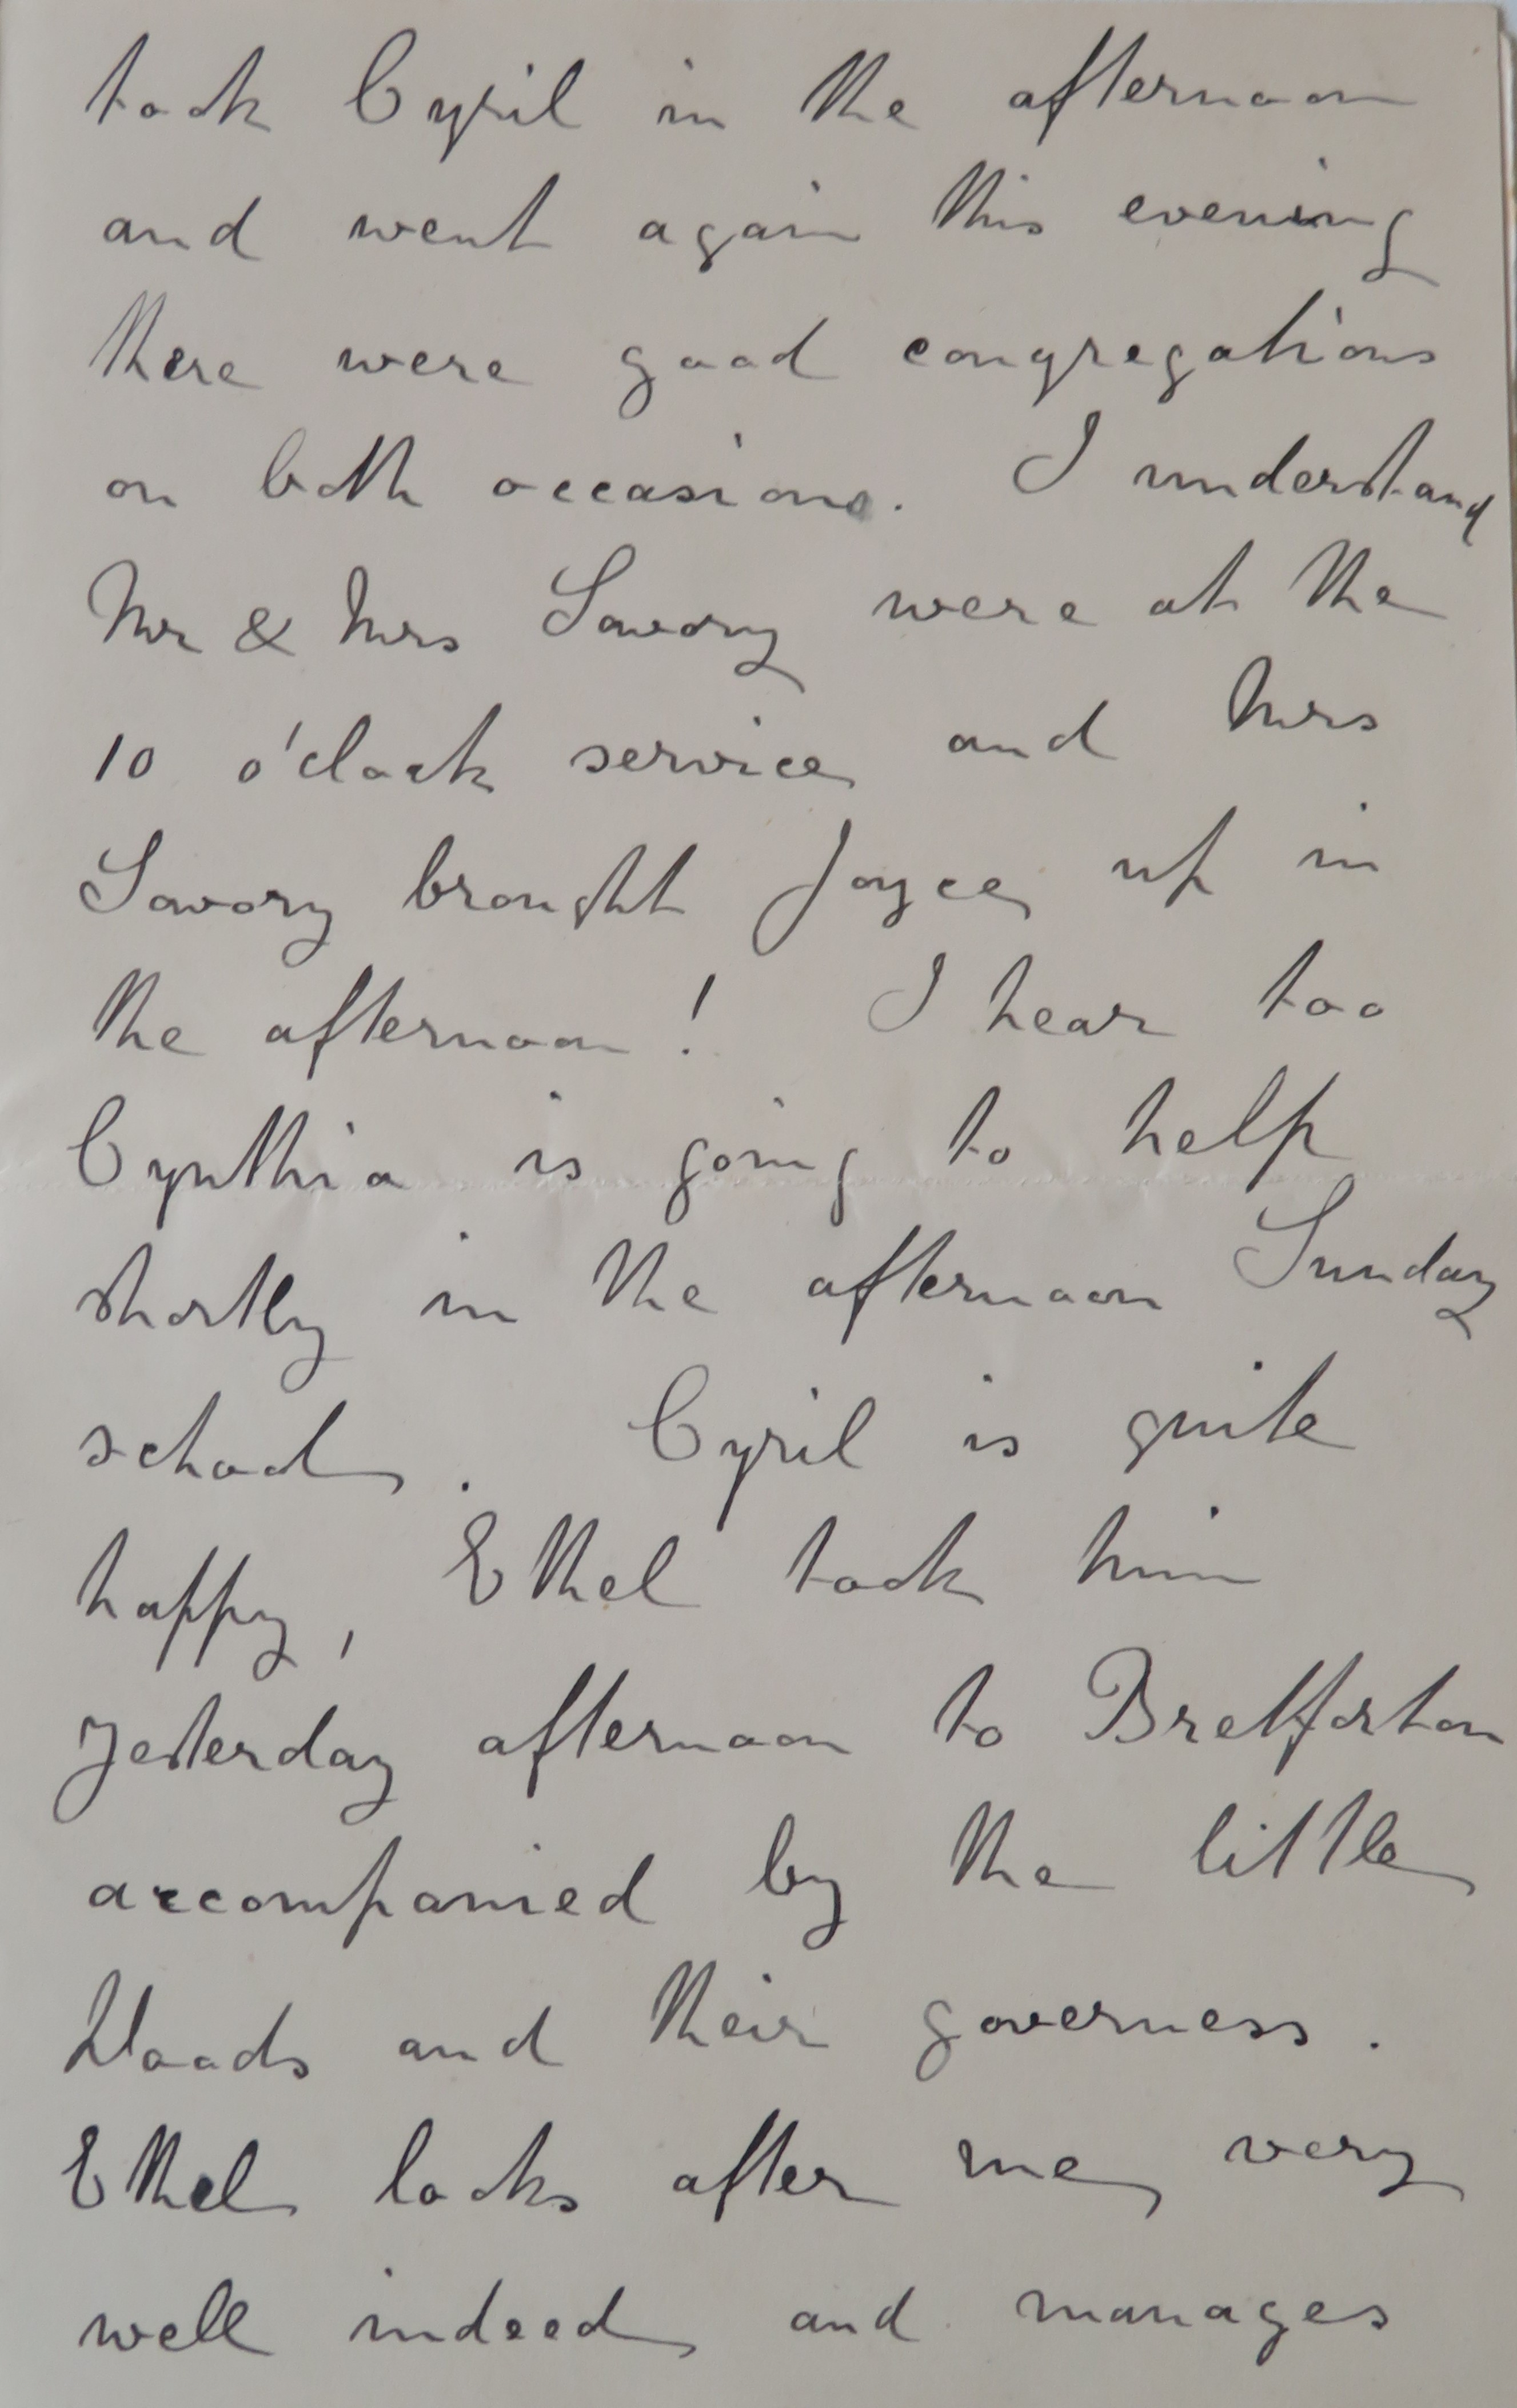 took Cyril in the afternoon
and went again this evening
there were good congregations
on both occasions. I understand
Mr & Mrs Savory were at the
10 o'clock service and Mrs
Savory brought Joyce up in
the afternoon! I hear too
Cynthia is going to help
shortly in the afternoon Sunday
school. Cyril is quite
happy, Ethel took him
yesterday afternoon to Bretforton
accompanied by the little
Woods and their governess.
Ethel looks after me very
well indeed and manages